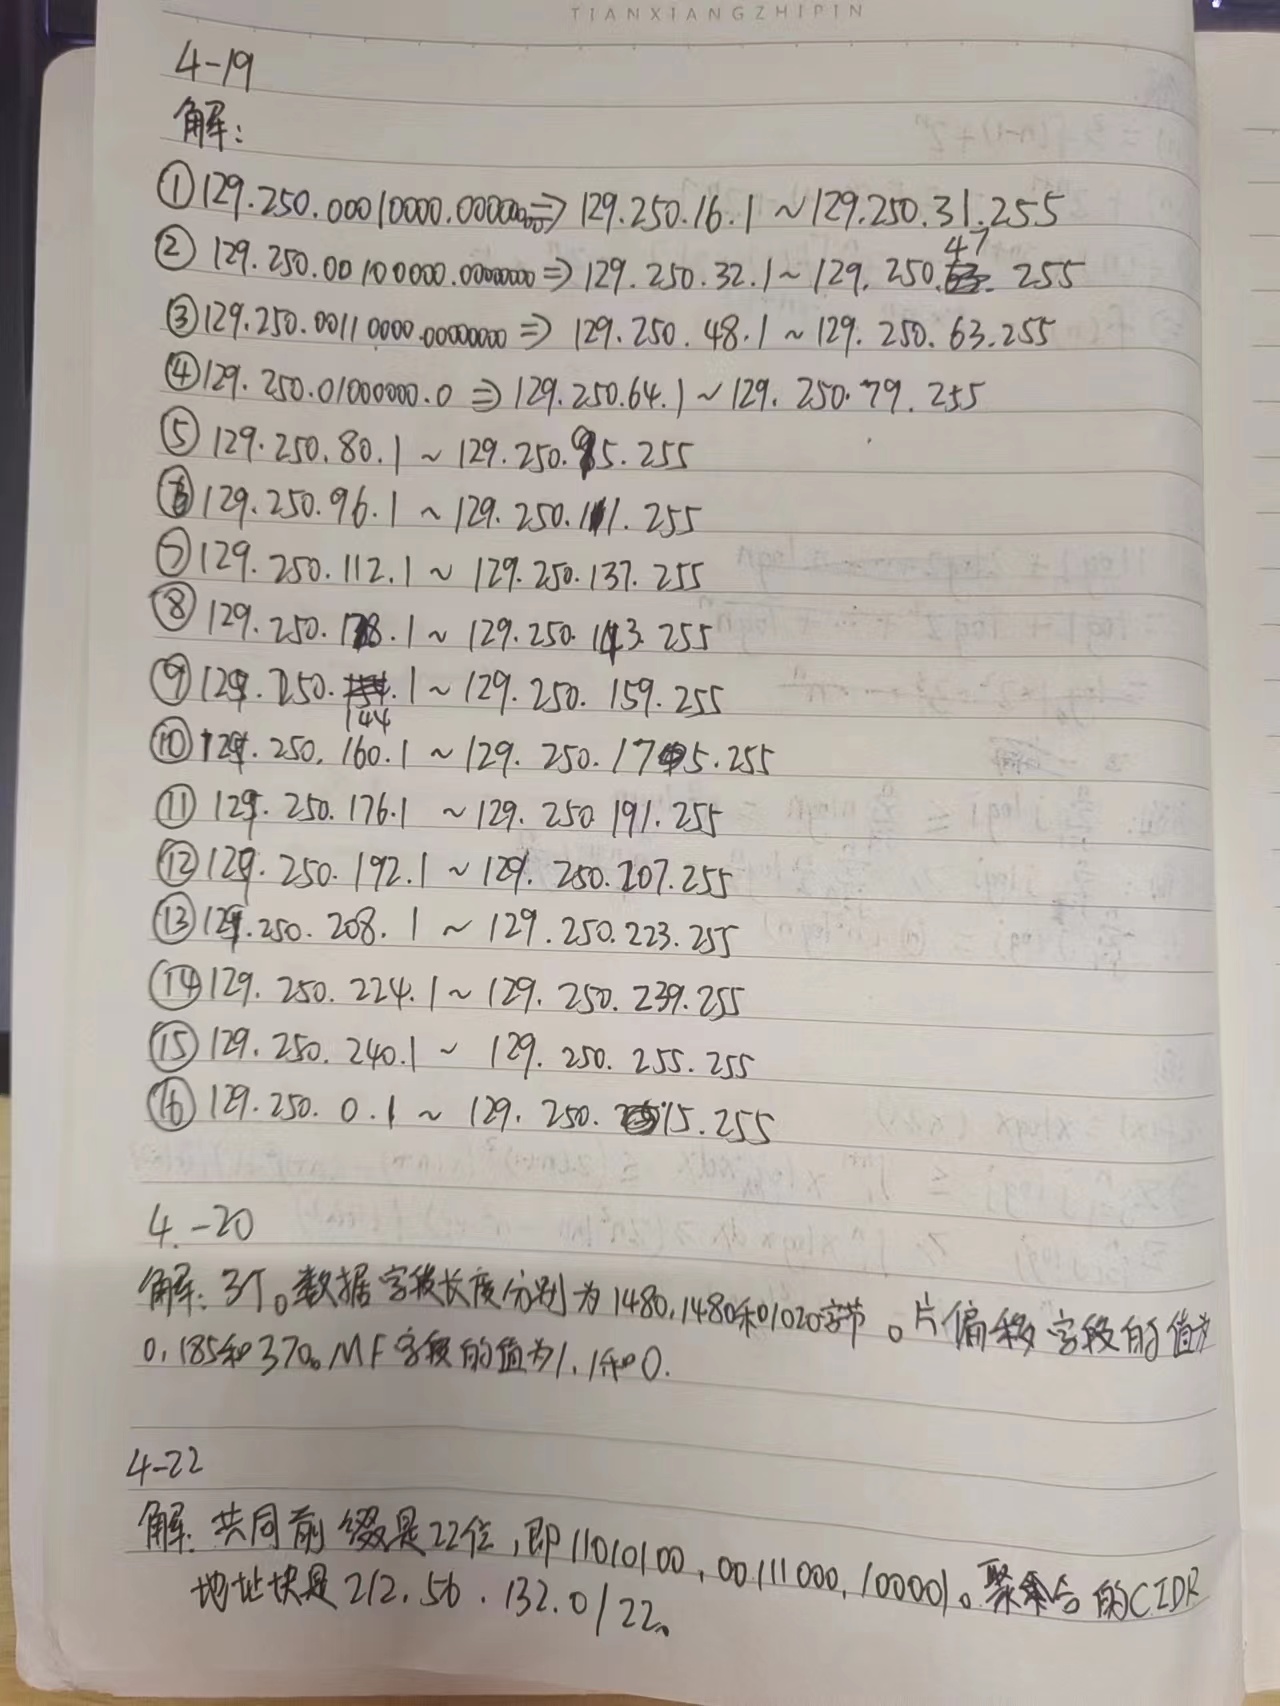 TIANXIANGZHIPIN
4-19
解:
①129.250.00010000.00000000⇒129.250.16.1~129.250.31.255
②129.250.00100000.00000000⇒129.250.32.1~129.250.47.255
③129.250.00110000.00000000⇒129.250.48.1~129.250.63.255
④129.250.01000000.0⇒129.250.64.1~129.250.79.255
⑤129.250.80.1~129.250.95.255
⑥129.250.96.1~129.250.111.255
⑦129.250.112.1~129.250.137.255
⑧129.250.128.1~129.250.143.255
⑨129.250.144.1~129.250.159.255
⑩129.250.160.1~129.250.175.255
⑪129.250.176.1~129.250.191.255
⑫129.250.192.1~129.250.207.255
⑬129.250.208.1~129.250.223.255
⑭129.250.224.1~129.250.239.255
⑮129.250.240.1~129.250.255.255
⑯129.250.0.1~129.250.15.255
4.-20
解:3个。数据字段长度分别为1480,1480和1020字节。片偏移字段的值为
0,185和370。MF字段的值为1,1和0.
4-22
解:共同前缀是22位,即11010100,00111000,100001。聚合的CIDR
地址块是212.56.132.0/22。